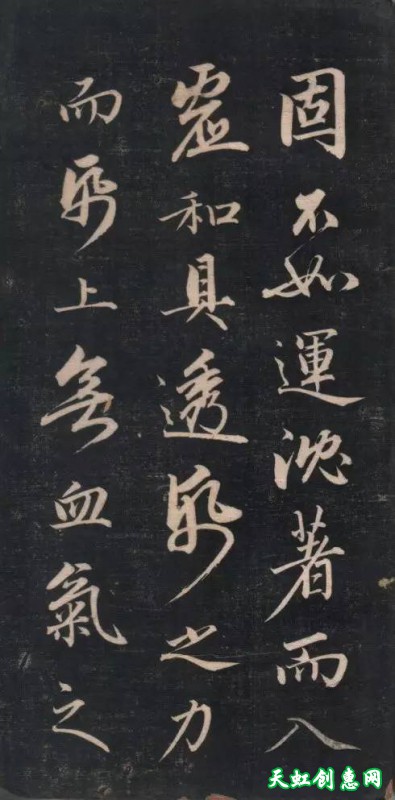 固不如運沈著而入
虛和具透紙之力
而紙上無血氣之
天虹创惠网